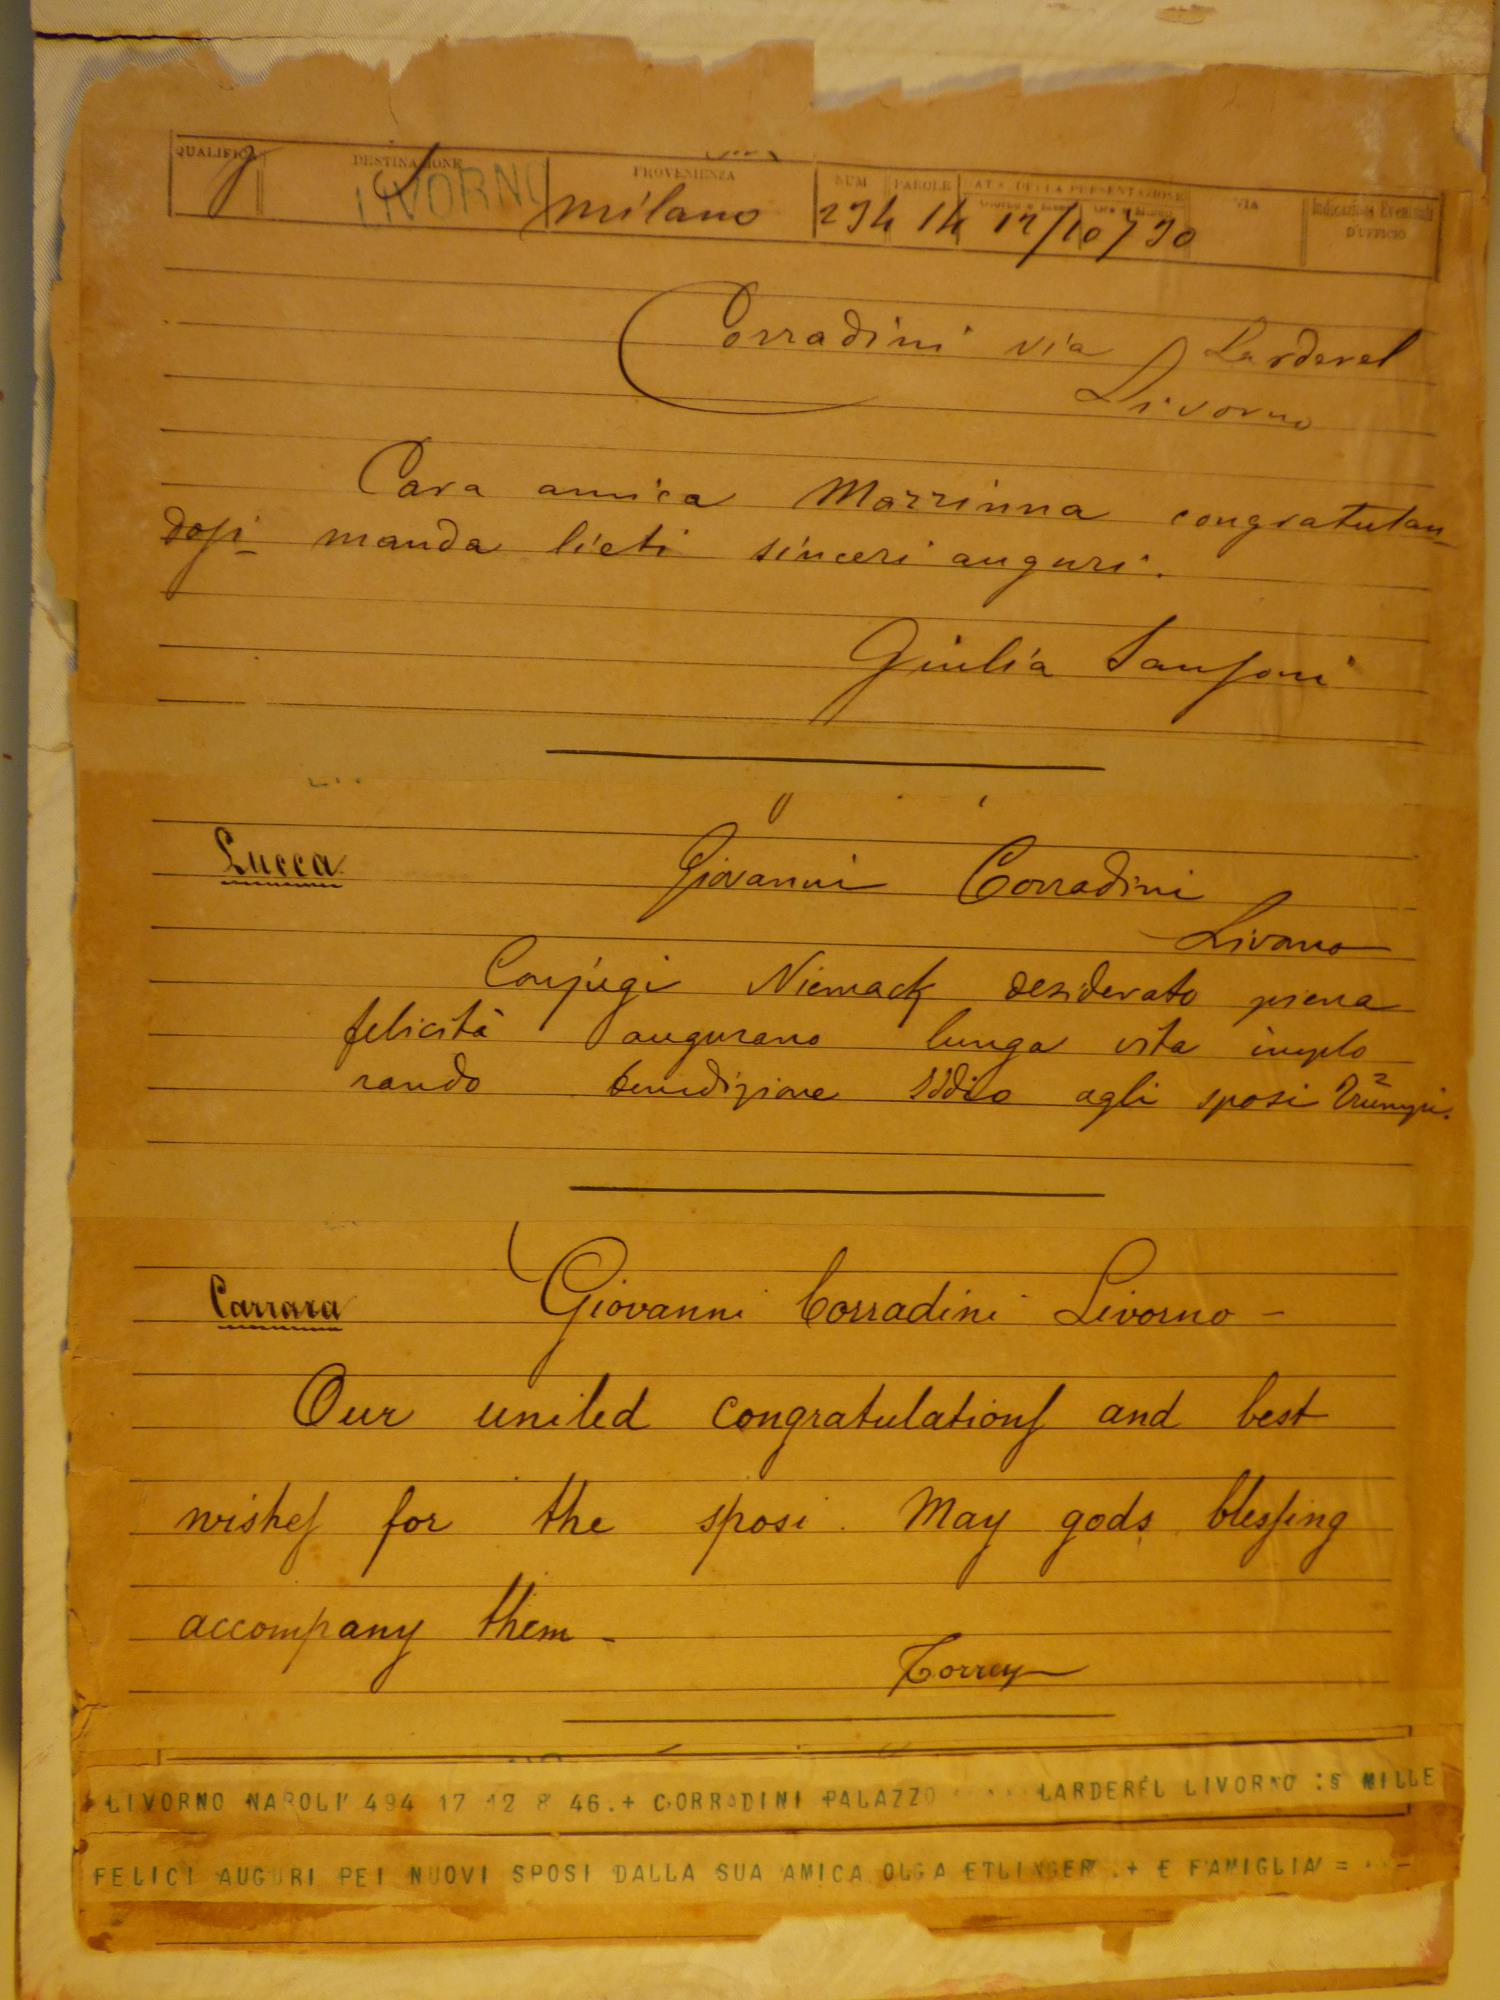 QUALIFICA DESTINAZIONE PROVENIENZA NUM. PAROLE DATA DELLA PRESENTAZIONE VIA Indicazioni Eventuali
D'UFFICIO
LIVORNO milano 294 14 12/10/30
Corradini via Larderel
Livorno
Cara amica congratulan-
dosi manda lieti sinceri auguri.
Giulia Sansoni
Lucca
Giovanni Corradini
Livorno
Conjugi Niemack desiderato piena
felicità augurano lunga vita implo
rando benedizione Iddio agli sposi
Carrara
Giovanni Corradini Livorno -
Our united congratulations and best
wishes for the sposi. May gods blessing
accompany them -
Torrey
LIVORNO NAPOLI 494 17 12 8 46.+ CORRADINI PALAZZO LARDEREL LIVORNO :s MILLE
FELICI AUGURI PEI NUOVI SPOSI DALLA SUA AMICA OLGA ETLINGER .+ E FAMIGLIA =